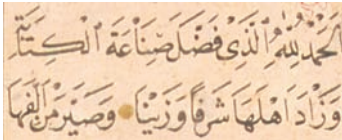 اَلْحَمْدُ لِلّٰهِ الَّذِيْ فَضَّلَ صِنَاعَةَ الْكِتَابَةِ
وَزَادَ اَهْلَهَا شَرَفًا وَزَيْنًا وَصَيَّرَ مَنْ اَلِفَهَا